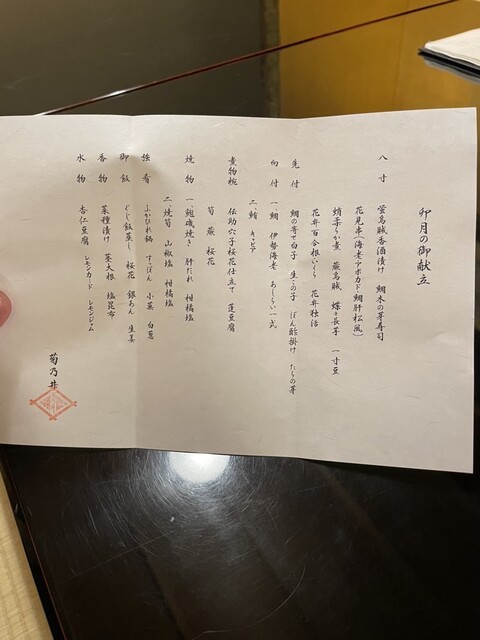 卯月の御献立
八寸 蛍烏賊香酒漬け 鯛木の芽寿司
花見串(海老アボカド鯛肝松風)
蛸子うま煮 蕨烏賊 蝶々長芋 一寸豆
花弁百合根いくら 花弁独活
先付 鯛の寄せ白子 生このこ ぽん酢掛け たらの芽
向付 一、鯛 伊勢海老 あしらい一式
二、鮪 キャビア
煮物椀 伝助穴子桜花仕立て 蓬豆腐
筍 蕨 桜花
焼物 一、鮑磯焼き 肝だれ 柑橘塩
二、焼筍 山椒塩 柑橘塩
強肴 ふかひれ鍋 すっぽん 小蕪 白葱
御飯 ぐじ飯蒸し 桜花 銀あん 生姜
香物 菜種漬け 茎大根 塩昆布
水物 杏仁豆腐 レモンカード レモンジャム
菊乃井